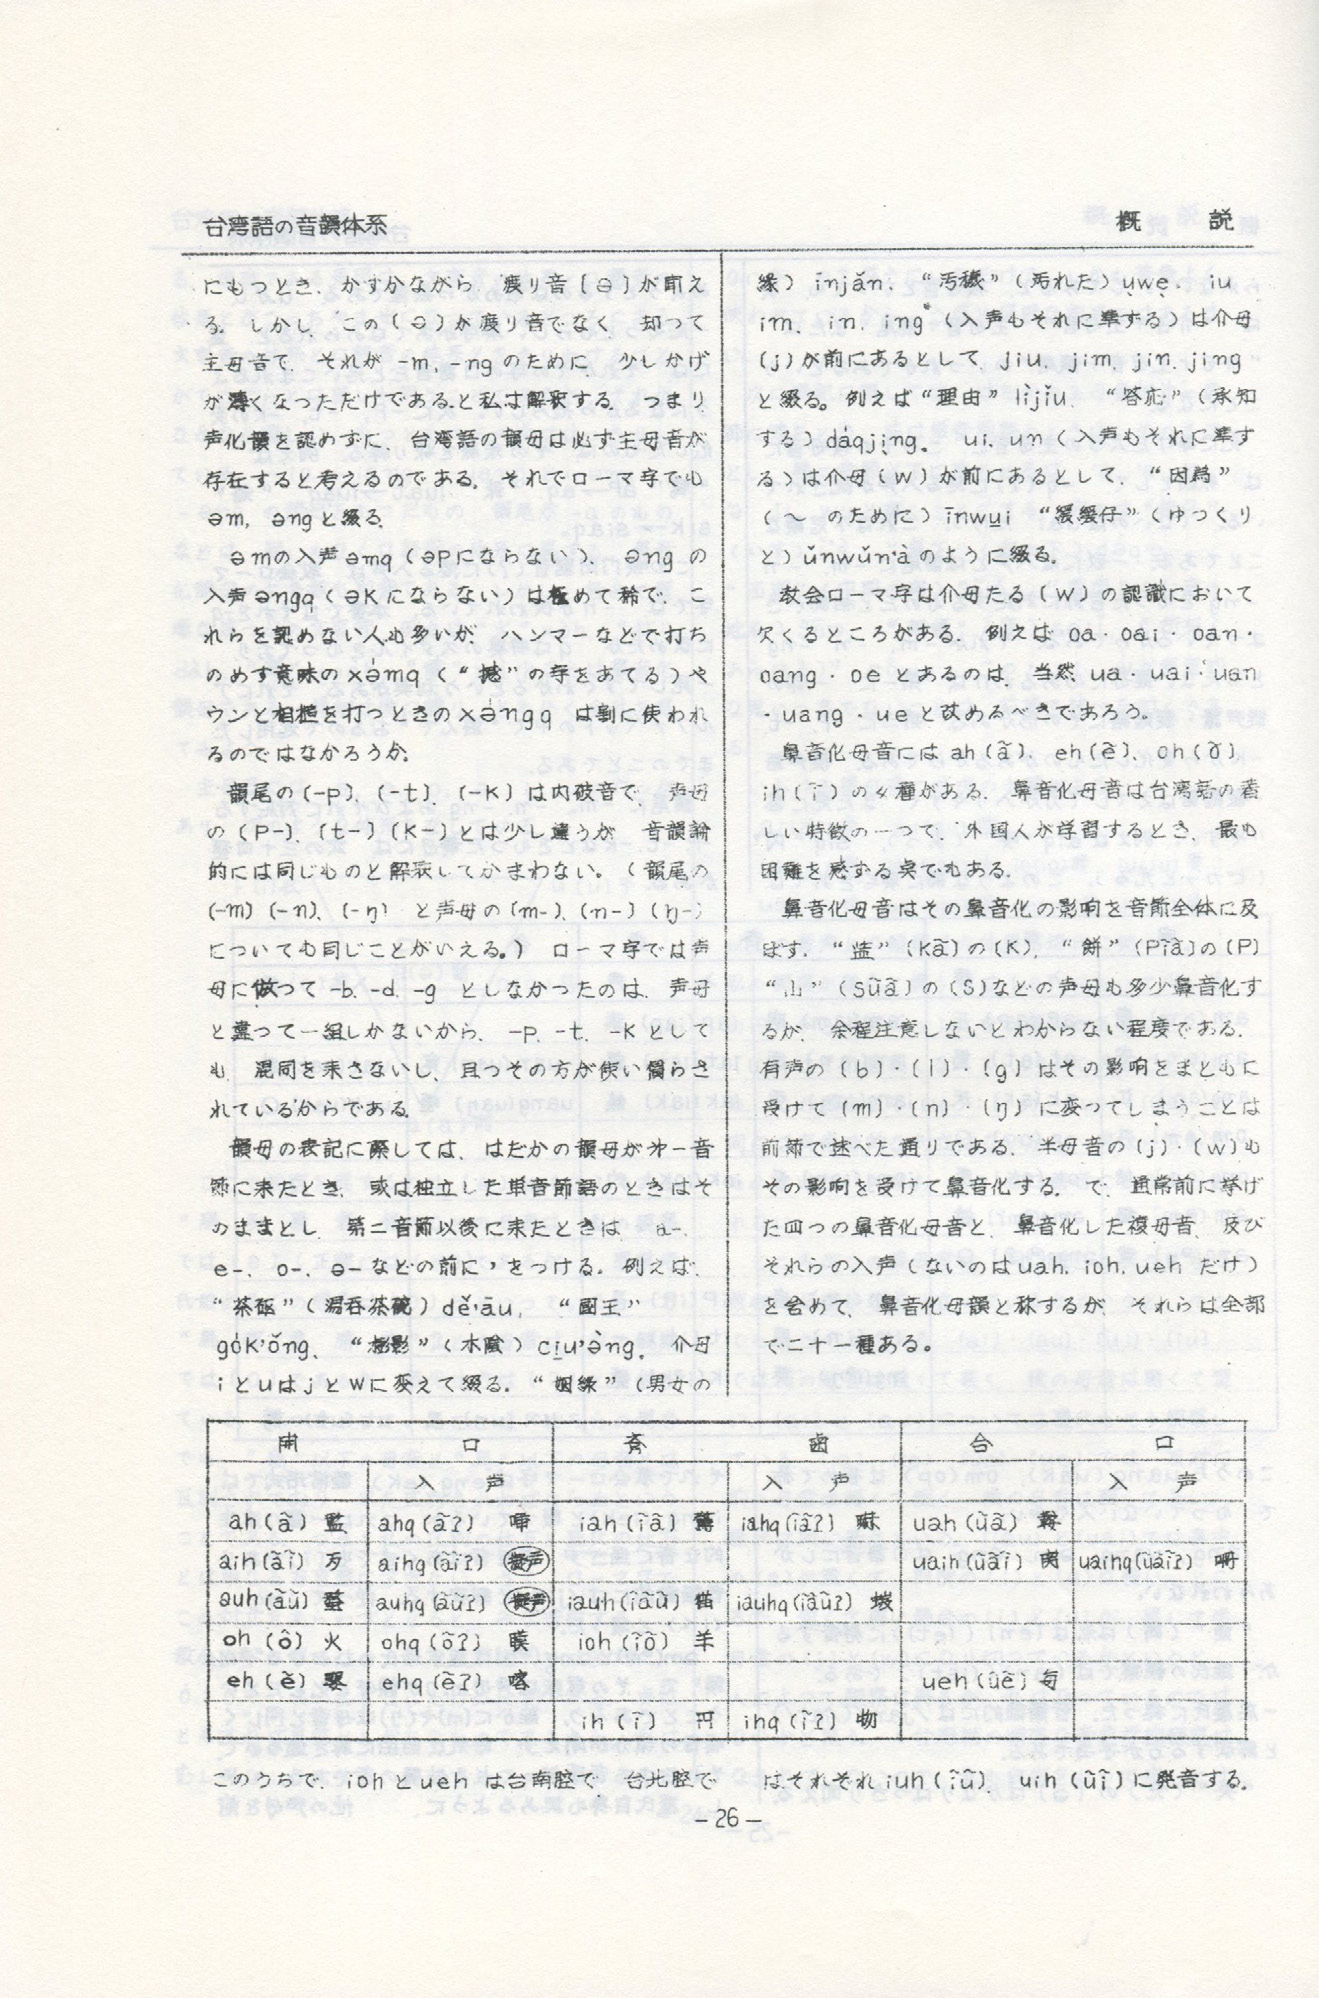 台湾語の音韻体系
概 説
にもつとき、かすかながら、渡り音〔ə〕が聞え
る。しかし、この〔ə〕が渡り音でなく、却つて
主母音で、それが -m, -ng のために、少しかげ
が薄くなっただけであると私は解釈する。つまり
声化韻を認めずに、台湾語の韻母は必ず主母音が
存在すると考えるのである。それでローマ字でも
əm, əng と綴る。
əmの入声əmq（əpにならない）、əng の
入声əngq（əkにならない）は極めて稀で、こ
れらを認めない人も多いが、ハンマーなどで打ち
のめす意味の xə̇mq（“撼”の字をあてる）や
ウンと相槌を打つときの xə̇ngq は割に使われ
るのではなかろうか。
韻尾の(-p)、(-t)、(-k)は内破音で、声母
の(p-)、(t-)(k-)とは少し違うが、音韻論
的には同じものと解釈してかまわない。（韻尾の
(-m)(-n)、(-ŋ) と声母の(m-)、(n-)(ŋ-)
についても同じことがいえる。） ローマ字では声
母に倣つて -b, -d, -g としなかったのは、声母
と違つて一組しかないから、-p, -t, -k として
も、混同を来さないし、且つその方が使い慣らさ
れているからである。
韻母の表記に際しては、はだかの韻母が才一音
節に来たとき、或は独立した単音節語のときはそ
のままとし、第二音節以後に来たときは、a-、
e-、o-、ə- などの前に ’をつける。例えば、
“茶甌”（湯呑茶碗）dě’āu, “國王”
gȯk’ǒng、“樹影”（木陰）ci̱u’ə̀ng。介母
iとuはjとwに変えて綴る。“姻緣”（男女の
縁）īnjǎn, “汚穢”（汚れた）ụwẹ、iu
im, in, ing*（入声もそれに準ずる）は介母
(j)が前にあるとして、jiu, jim, jin, jing
と綴る。例えば“理由”lìjǐu、“答應”（承知
する）dáqji̱ng。 ui, un（入声もそれに準ず
る）は介母（w）が前にあるとして、“因為”
（～ のために）īnwu̱i “緩緩仔”（ゆっくり
と）ǔnwǔn’à のように綴る。
教会ローマ字は介母たる（w）の認識において
欠くるところがある。例えば oa・oai・oan・
oang・oe とあるのは、当然 ua・uai・uan
・uang・ue と改めるべきであろう。
鼻音化母音には ah(ã)、eh(ẽ)、oh(õ)
ih(ĩ) の4種がある。鼻音化母音は台湾語の著
しい特徴の一つで、外国人が学習するとき、最も
困難を感ずる点でもある。
鼻音化母音はその鼻音化の影響を音節全体に及
ぼす。“監”(kã)の(k)、“餅”(pĩã)の(p)
“山”(sũã)の(s)などの声母も多少鼻音化す
るが、余程注意しないとわからない程度である。
有声の(b)・(l)・(g)はその影響をまともに
受けて(m)・(n)・(ŋ)に変つてしまうことは
前節で述べた通りである。半母音の(j)・(w)も
その影響を受けて鼻音化する。で、通常前に挙げ
た四つの鼻音化母音と、鼻音化した複母音、及び
それらの入声（ないのはuah, ioh, ueh だけ）
を含めて、鼻音化母韻と称するが、それらは全部
で二十一種ある。
開 口 斉 歯 合 口
入 声 入 声 入 声
ah(ã) 監 ahq(ãʔ) iah(ĩã) iahq(ĩãʔ) uah(ũã)
aih(ãĩ) 万 aihq(ãĩʔ) 擬声 uaih(ũãĩ) 関 uaihq(ũãĩʔ)
auh(ãũ) auhq(ãũʔ) 擬声 iauh(ĩãũ) 猫 iauhq(ĩãũʔ)
oh(õ) 火 ohq(õʔ) 膜 ioh(ĩõ) 羊
eh(ẽ) 嬰 ehq(ẽʔ) ueh(ũẽ) 每
ih(ĩ) 円 ihq(ĩʔ) 物
このうちで、ioh と ueh は台南腔で、台北腔で はそれぞれ iuh(ĩũ)、uih(ũĩ)に発音する。
—26—